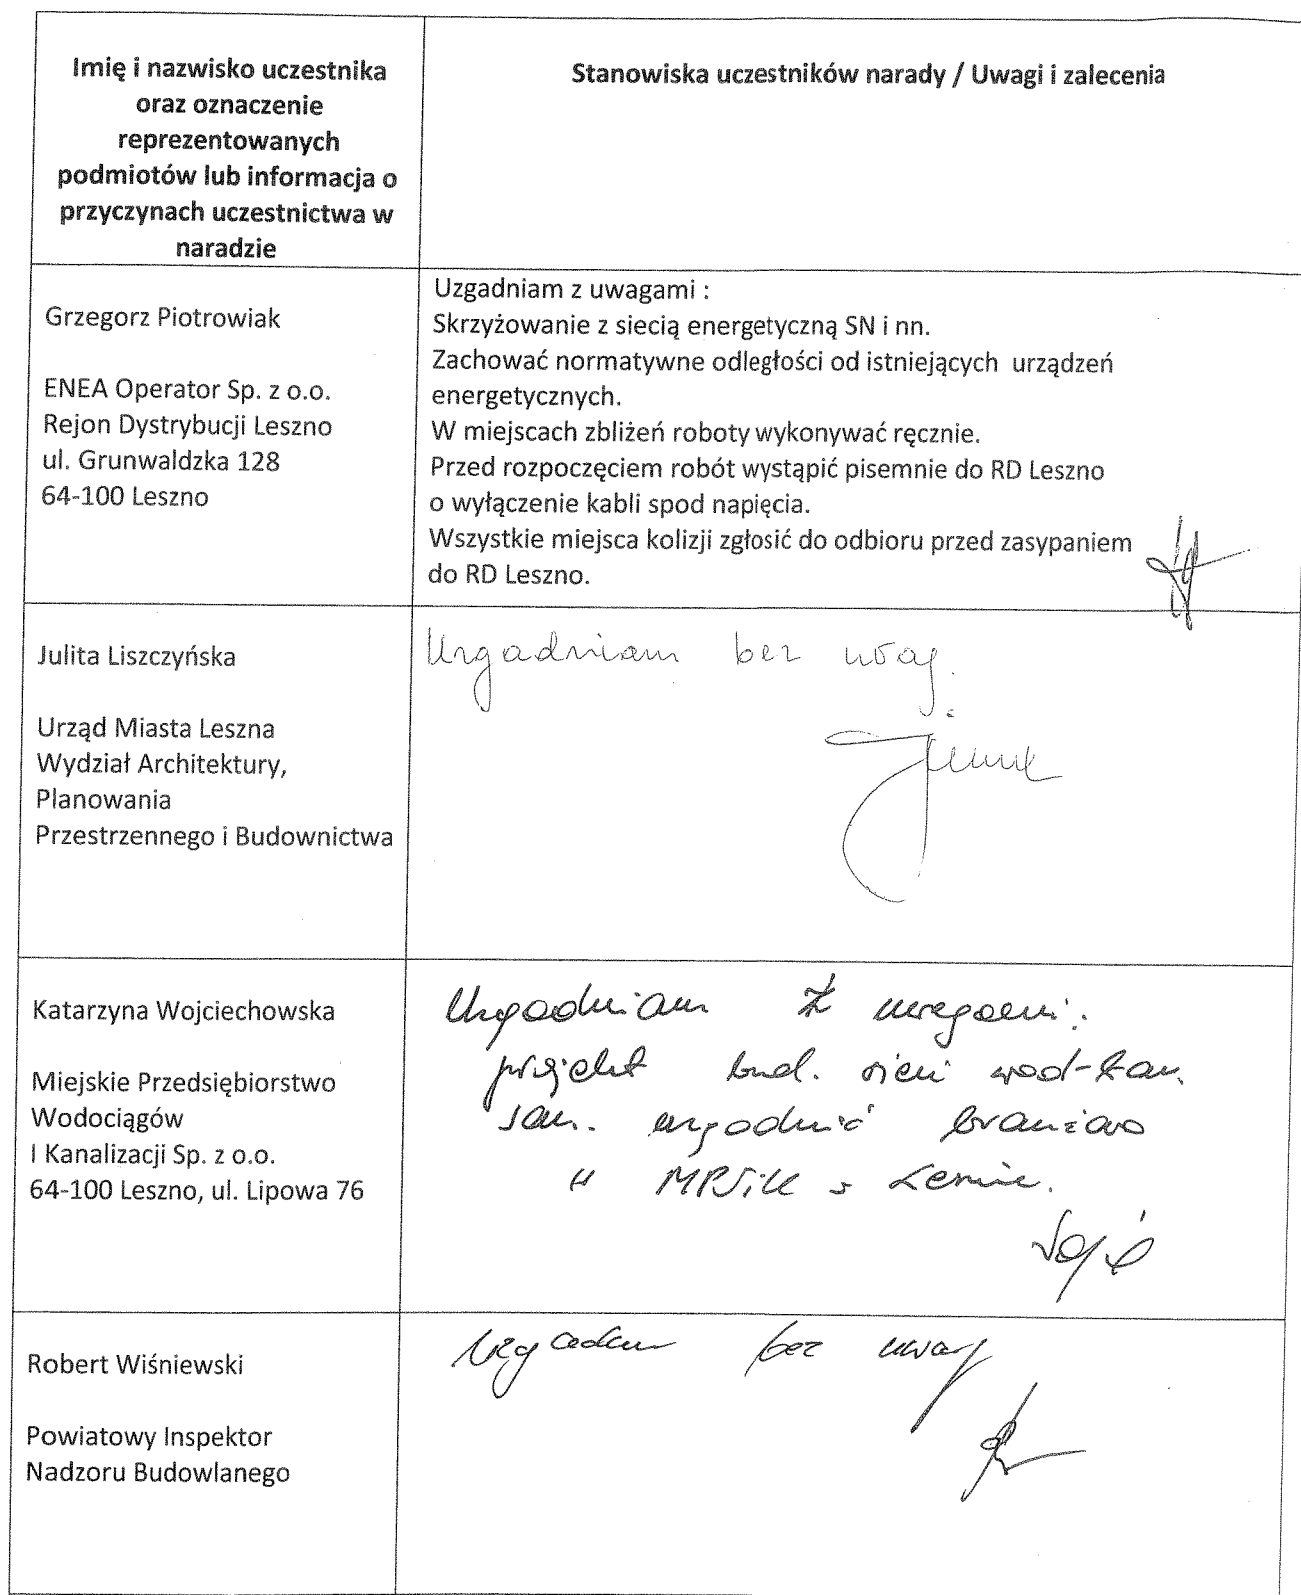 Imię i nazwisko uczestnika
oraz oznaczenie
reprezentowanych
podmiotów lub informacja o
przyczynach uczestnictwa w
naradzie
Stanowiska uczestników narady / Uwagi i zalecenia
Grzegorz Piotrowiak
ENEA Operator Sp. z o.o.
Rejon Dystrybucji Leszno
ul. Grunwaldzka 128
64-100 Leszno
Uzgadniam z uwagami :
Skrzyżowanie z siecią energetyczną SN i nn.
Zachować normatywne odległości od istniejących urządzeń
energetycznych.
W miejscach zbliżeń roboty wykonywać ręcznie.
Przed rozpoczęciem robót wystąpić pisemnie do RD Leszno
o wyłączenie kabli spod napięcia.
Wszystkie miejsca kolizji zgłosić do odbioru przed zasypaniem
do RD Leszno.
Julita Liszczyńska
Urząd Miasta Leszna
Wydział Architektury,
Planowania
Przestrzennego i Budownictwa
Uzgadniam bez uwag.
Katarzyna Wojciechowska
Miejskie Przedsiębiorstwo
Wodociągów
I Kanalizacji Sp. z o.o.
64-100 Leszno, ul. Lipowa 76
Uzgadniam z uwagami:
projekt bud. sieci wod-kan.
san. uzgodnić branżowo
w MPWiK w Lesznie.
Robert Wiśniewski
Powiatowy Inspektor
Nadzoru Budowlanego
Uzgadniam bez uwag